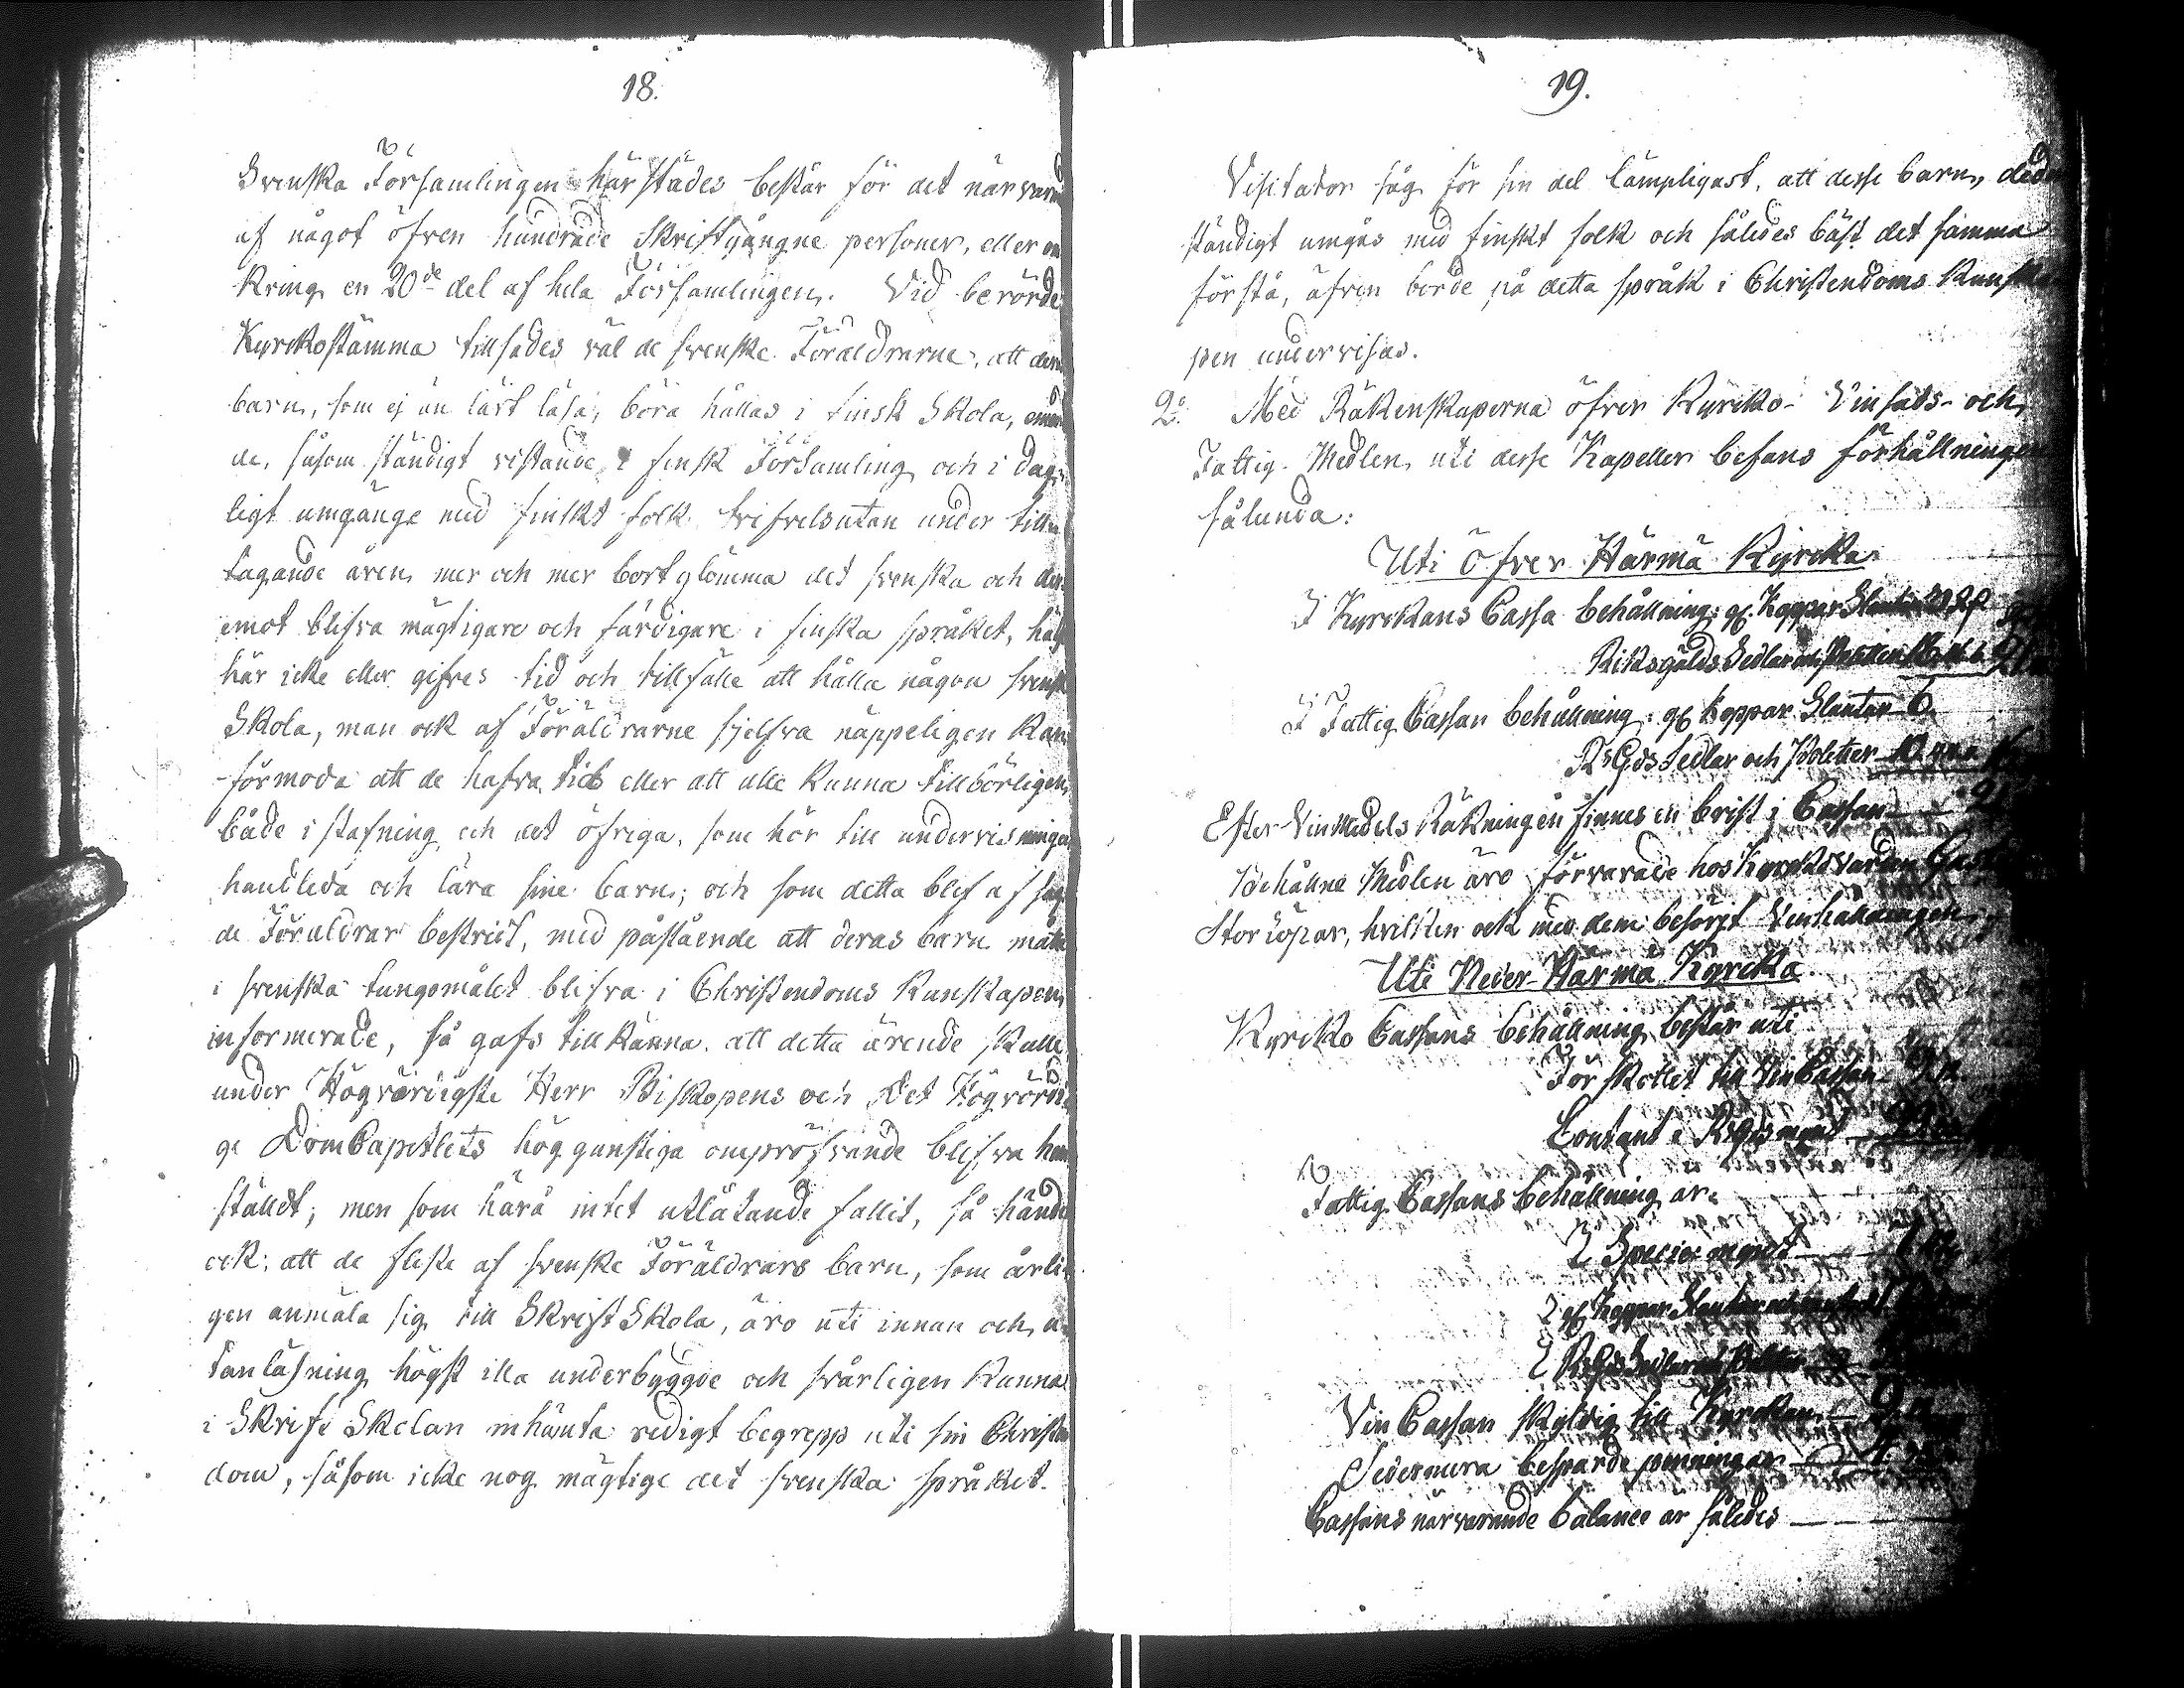 18.
Svenska Församlingen härstädes består för det närvar
af något öfven hundrade Skriftgångne personer, eller om
kring en 20de del af hela Församlingen. Vid berörde
Kyrckostämma tillsades väl de svenske Föräldrarne, att deras
barn, som ej än lärt läsa, böra hållas i finsk Skola, emed
de, såsom ständigt vistande i finsk Församling och i dag
ligt umgänge med finskt folk tvifvelsutan under till
tagande åren mer och mer bortglömma det svenska och der
emot blifva mägtigare och färdigare i finska språket, hälst
här icke eller gifves tid och tillfälle att hålla någon svensk
Skola, man ock af Föräldrarne sjelfva näppeligen kan
förmoda att de hafva tid eller att alle kunna tillbörligen
både i stafning och det öfriga, som hör till undervisningen
handleda och lära sine barn; och som detta blef af sag
de Föräldrar bestridt, med påstående att deras barn måtte
i svenska tungomålet blifva i Christendoms kunskapen
informerade, så gafs tillkänna att detta ärende skulle
under Högvördigste Herr Biskopens och Det Högvördi
ge DomCapitlets höggunstiga ompröfvande blifva hem
stäldt; men som härå intet utlåtande fallit, så hände
ock: att de fleste af svenske Föräldrars barn, som årli
gen anmäla sig till SkriftSkola, äro uti innan och u
tanläsning högst illa underbyggde och svårligen kunna
i Skrift Skolan inhämta redigt begrepp uti sin Christen
dom, såsom icke nog mägtige det svenska språket.
19.
Visitator såg för sin del lämpligast, att desse barn, de de
ständigt umgås med finskt folk och således bäst det samma
förstå, äfven borde på detta språk i Christendoms Kunska
pen undervisas.
2o. Med Räkenskaperna öfver Kyrcko- Vinsäds- och
Fattig-Medlen uti desse Kapeller befans förhållningen
sålunda:
Uti Öfver Härmä Kyrcka
I Kyrckans Cassa behållning: gl. Koppar Slantar
Riksgälds Sedlar och
I Fattig Cassan behållning: gl Koppar Slantar 6.
RsGds Sedlar och Poletter
Efter Vinmedels Räkningen finnes en brist i Cassan
Behållne Medlen äro förvarade hos Kyrckovärden
Storlöpar, hvilken ock med dem besörgt Vinhållningen.
Uti Neder-Härmä Kyrcka
Kyrcko Cassans behållning består uti
Förskottet till VinCassan
Contant i RsGds mynt
Fattig Cassans behållning är:
I Specie mynt
I gl Koppar Slantar
I RsGds Sedlar och Poletter
Vin Cassan skyldig till Kyrckan
Sedermera besparde penningar
Cassans närvarande balance är således